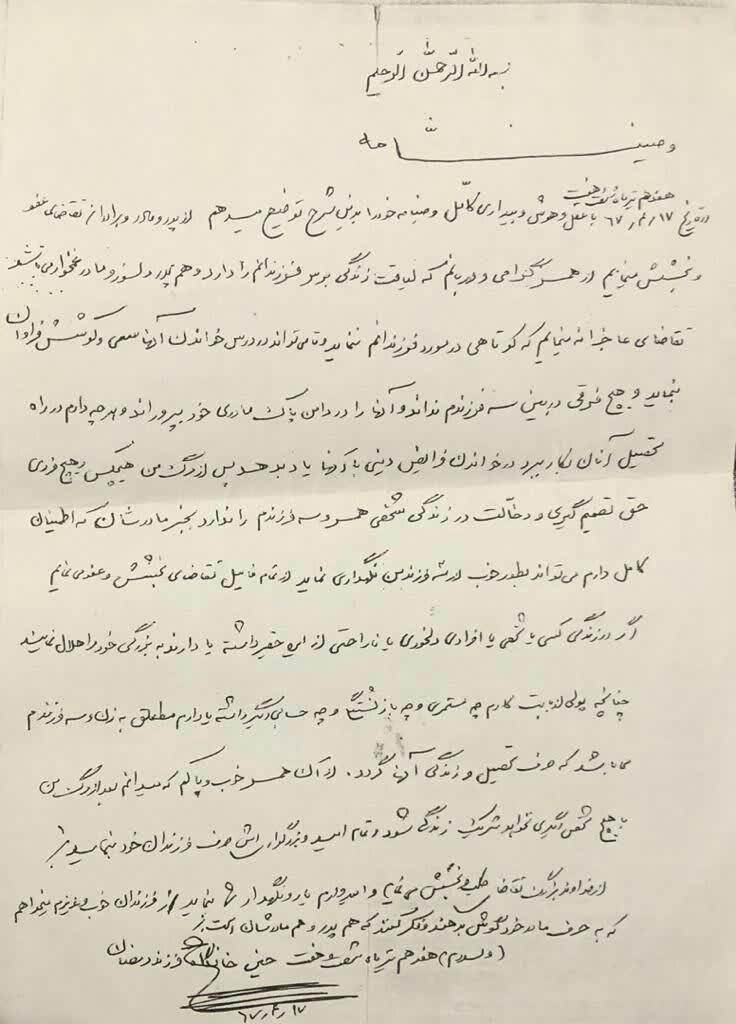 بسم الله الرحمن الرحیم
وصیتنامه
هفدهم تیرماه شصت و هفت
در تاریخ ۶۷/۴/۱۷ با عقل و هوش و بیداری کامل وصیتنامه خود را بدین شرح توضیح میدهم از پدر و مادر و برادران تقاضای عفو
و بخشش مینمایم از همسر گرامی و که لیاقت زندگی فرزندانم را دارد و هم پدر دلسوز و مادر غمخوار می باشد
تقاضای عاجزانه مینمایم که کوتاهی در مورد فرزندانم ننماید و تا می تواند در درس خواندن آنها سعی و کوشش فراوان
بنماید و هیچ فرقی در بین سه فرزندم نداند و آنها را در دامن پاک مادری خود بپروراند و هر چه دارم در راه
تحصیل آنان بکار ببرد در خواندن فرایض دینی با آنها یاد بدهد پس از مرگ من هیچکس و هیچ فردی
حق تصمیم گیری و دخالت در زندگی شخصی همسر و سه فرزندم را ندارد بجز مادرشان که اطمینان
کامل دارم می تواند بطور خوب از سه فرزند من نگهداری نماید از تمام فامیل تقاضای بخشش و عفو می نمایم
اگر در زندگی کسی یا شخصی یا افرادی دلخوری یا ناراحتی از این حقیر داشته یا دارند به بزرگی خود مرا حلال نمایند
چنانچه پولی از بابت کارم چه مستمری و چه بازنشستگی و چه حسابی دیگر داشته یا دارم متعلق به زن و سه فرزندم
می باشد که صرف تحصیل و زندگی آنها گردد. از آن همسر خوب و پاکم که میدانم بعد از مرگ من
با هیچ شخص دیگری نخواهد شریک زندگی شود و تمام امید و بزرگواری اش صرف فرزندان خود بنماید
از خداوند بزرگ تقاضای طلب و بخشش می نمایم و امیدوارم یار و نگهدار شما نماید از فرزندان خوب و عزیزم میخواهم
که به حرف مادر خود گوش بدهند و فکر کنند که هم پدر و هم مادرشان است
(والسلام) هفدهم تیرماه شصت و هفت فرزند رمضان
۶۷/۴/۱۷